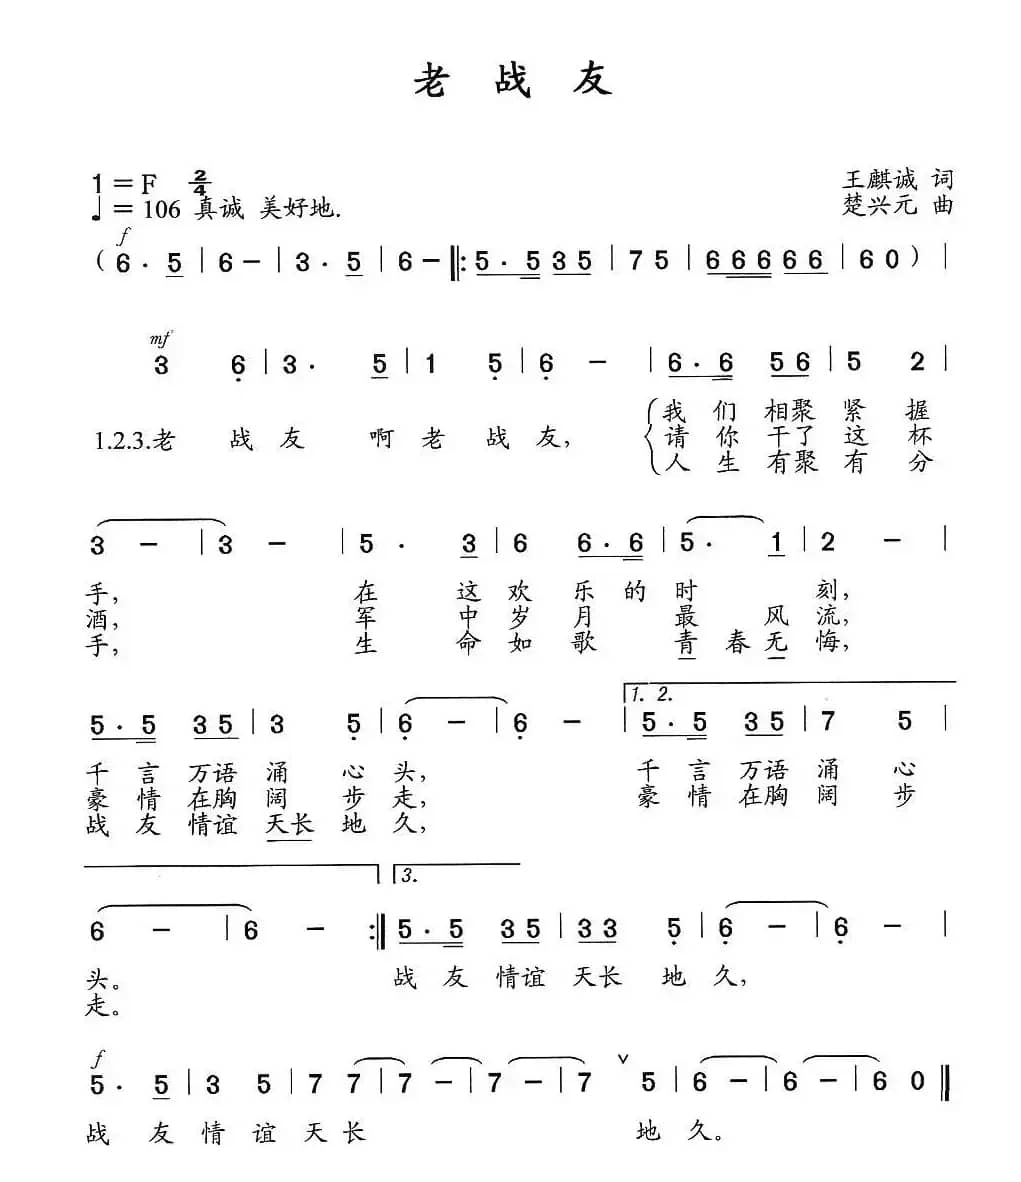 老 战 友
1 = F 2/4
王麒诚 词
♩ = 106 真诚 美好地.
楚兴元 曲
f
( 6 . 5 | 6 - | 3 . 5 | 6 - ‖: 5 . 5 3 5 | 7 5 | 6 6 6 6 6 6 | 6 0 ) |
mf
3 6 | 3 . 5 | 1 5 | 6 - | 6 . 6 5 6 | 5 2 |
我 们 相聚 紧 握
1.2.3.老 战 友 啊 老 战 友, 请 你 干了 这 杯
人 生 有聚 有 分
3 - | 3 - | 5 . 3 | 6 6 . 6 | 5 . 1 | 2 - |
手, 在 这 欢 乐 的 时 刻,
酒, 军 中 岁 月 最 风 流,
手, 生 命 如 歌 青 春 无 悔,
1. 2.
5 . 5 3 5 | 3 5 | 6 - | 6 - | 5 . 5 3 5 | 7 5 |
千 言 万语 涌 心 头, 千 言 万语 涌 心
豪 情 在胸 阔 步 走, 豪 情 在胸 阔 步
战 友 情谊 天长 地 久,
3.
6 - | 6 - :‖ 5 . 5 3 5 | 3 3 5 | 6 - | 6 - |
头。 战 友 情谊 天长 地 久,
走。
f
5 . 5 | 3 5 | 7 7 | 7 - | 7 - | 7 ∨ 5 | 6 - | 6 - | 6 0 ‖
战 友 情 谊 天 长 地 久。